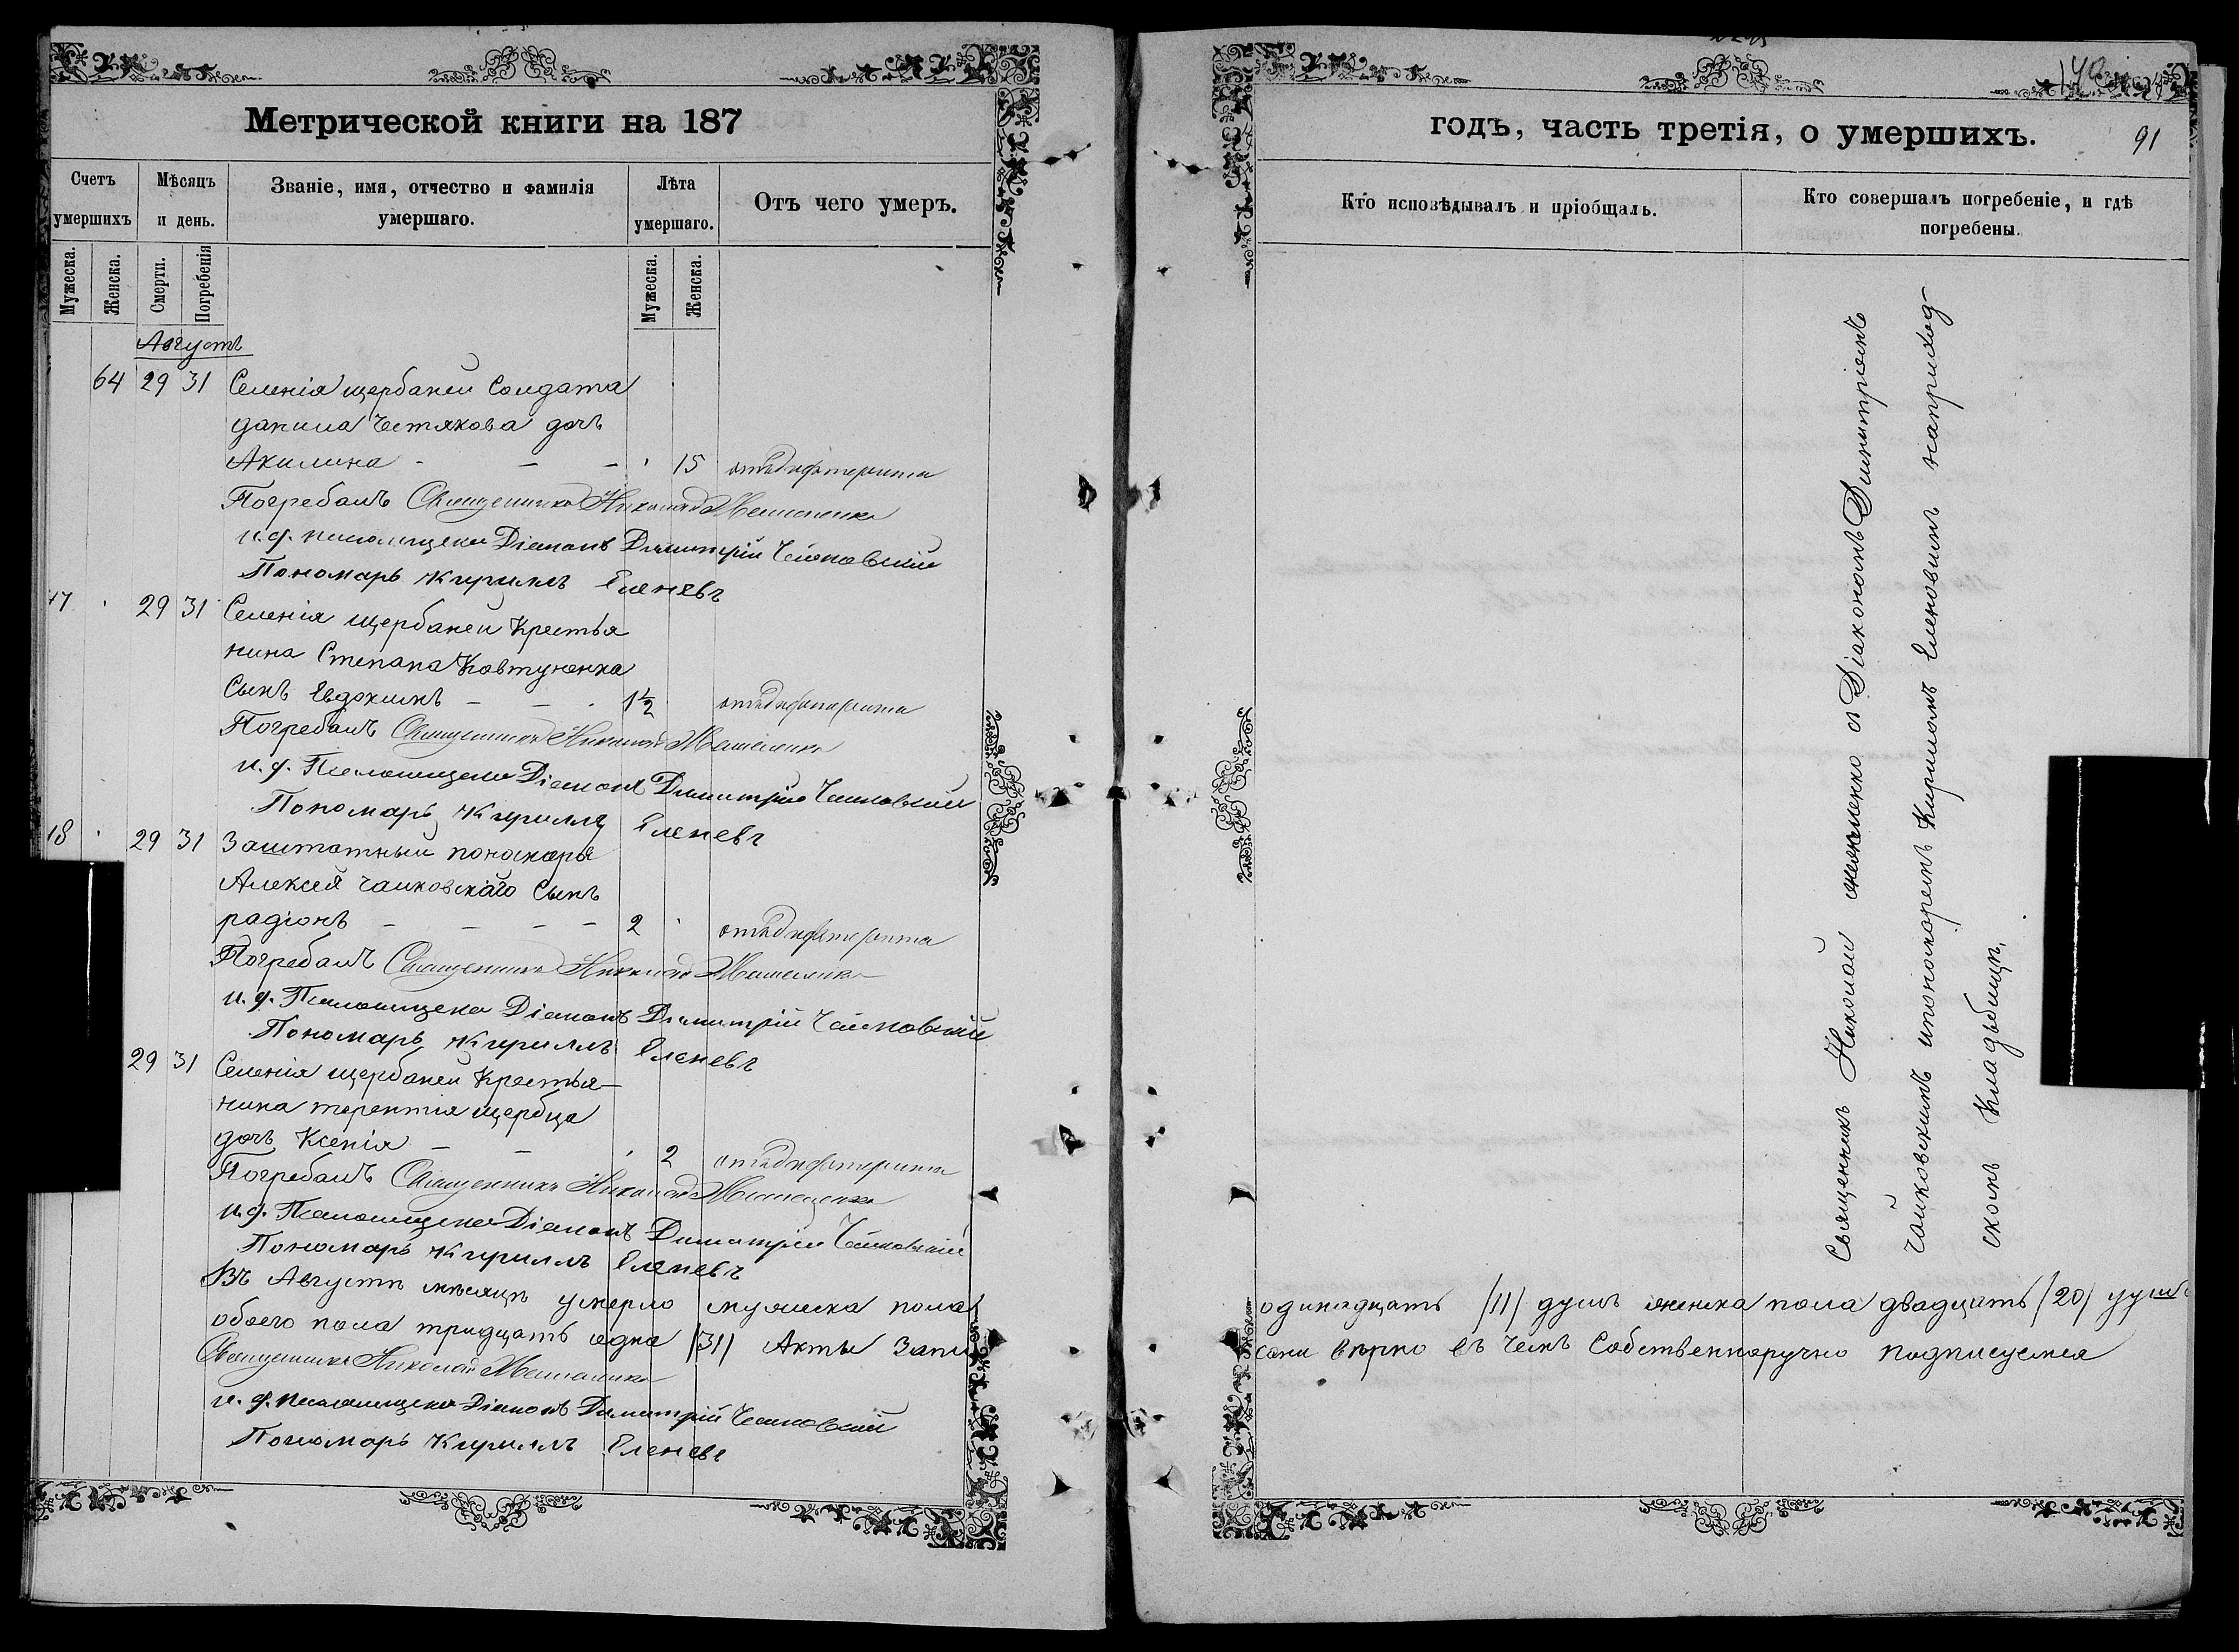 Метрической книги на 187
Счетъ умершихъ
Мѣсяцъ и день.
Званіе, имя, отчество и фамилія умершаго.
Лѣта умершаго.
Отъ чего умеръ.
Мужеска.
Женска.
Смерти.
Погребенія
Мужеска.
Женска.
Августъ
64 29 31 Селенія щербаней Солдата
данила Честякова дочь
Акилина - - - 15 отъ дифтерита
Погребалъ Священникъ Николай
и. д. псаломщика Діаконъ Димитрій Чайковскій
Пономарь Кириллъ Еленевъ
47 29 31 Селенія щербаней Крестья
нина Степана Ковтуненка
Сынъ Евдокимъ - - 1½ отъ дифтерита
Погребалъ Священникъ Николай
и. д. Псаломщика Діаконъ Димитрій Чайковскій
Пономарь Кириллъ Еленевъ
18 29 31 Заштатный пономаря
Алексея чайковскаго Сынъ
радіонъ - - - - 2 отъ дифтерита
Погребалъ Священникъ Николай
и. д. Псаломщика Діаконъ Димитрій Чайковскій
Пономарь Кириллъ Еленевъ
29 31 Селенія щербаней Крестья-
нина терентія щербца
дочь Ксенія - - 2 отъ дифтерита
Погребалъ Священникъ Николай
и. д. Псаломщика Діаконъ Димитрій Чайковскій
Пономарь Кириллъ Еленевъ
Въ Августѣ мѣсяцѣ умерло мужеска пола
обоего пола тридцать одна /31/ Акты Запи
Священникъ Николай
и. д. псаломщика Діаконъ Димитрій Чайковскій
Пономарь Кириллъ Еленевъ
годъ, часть третія, о умершихъ.
91
Кто исповѣдывалъ и пріобщалъ.
Кто совершалъ погребеніе, и гдѣ погребены.
Священникъ Николай с Діакономъ Димитріемъ
Чайковскимъ ипономаремъ Кириломъ Еленовимъ наприход-
скомъ Кладбищѣ,
одинадцать /11/ душъ женска пола двадцать /20/ душъ
сани вѣрно въ чемъ Собственноручно подписуемся